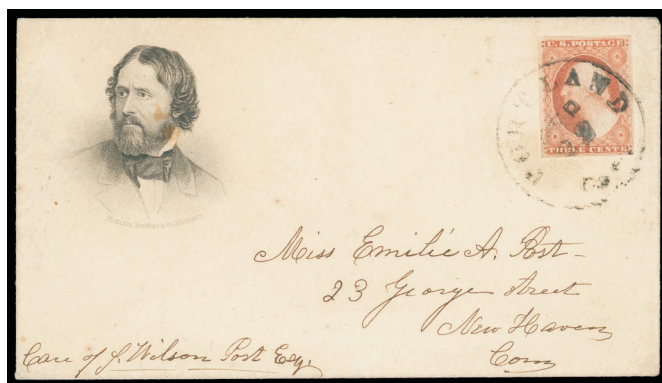 U.S. POSTAGE
THREE CENTS
PORTLAND
Miss Emilie A. Post
23 George Street
New Haven
Conn
Care of J. Wilson Post Esq.